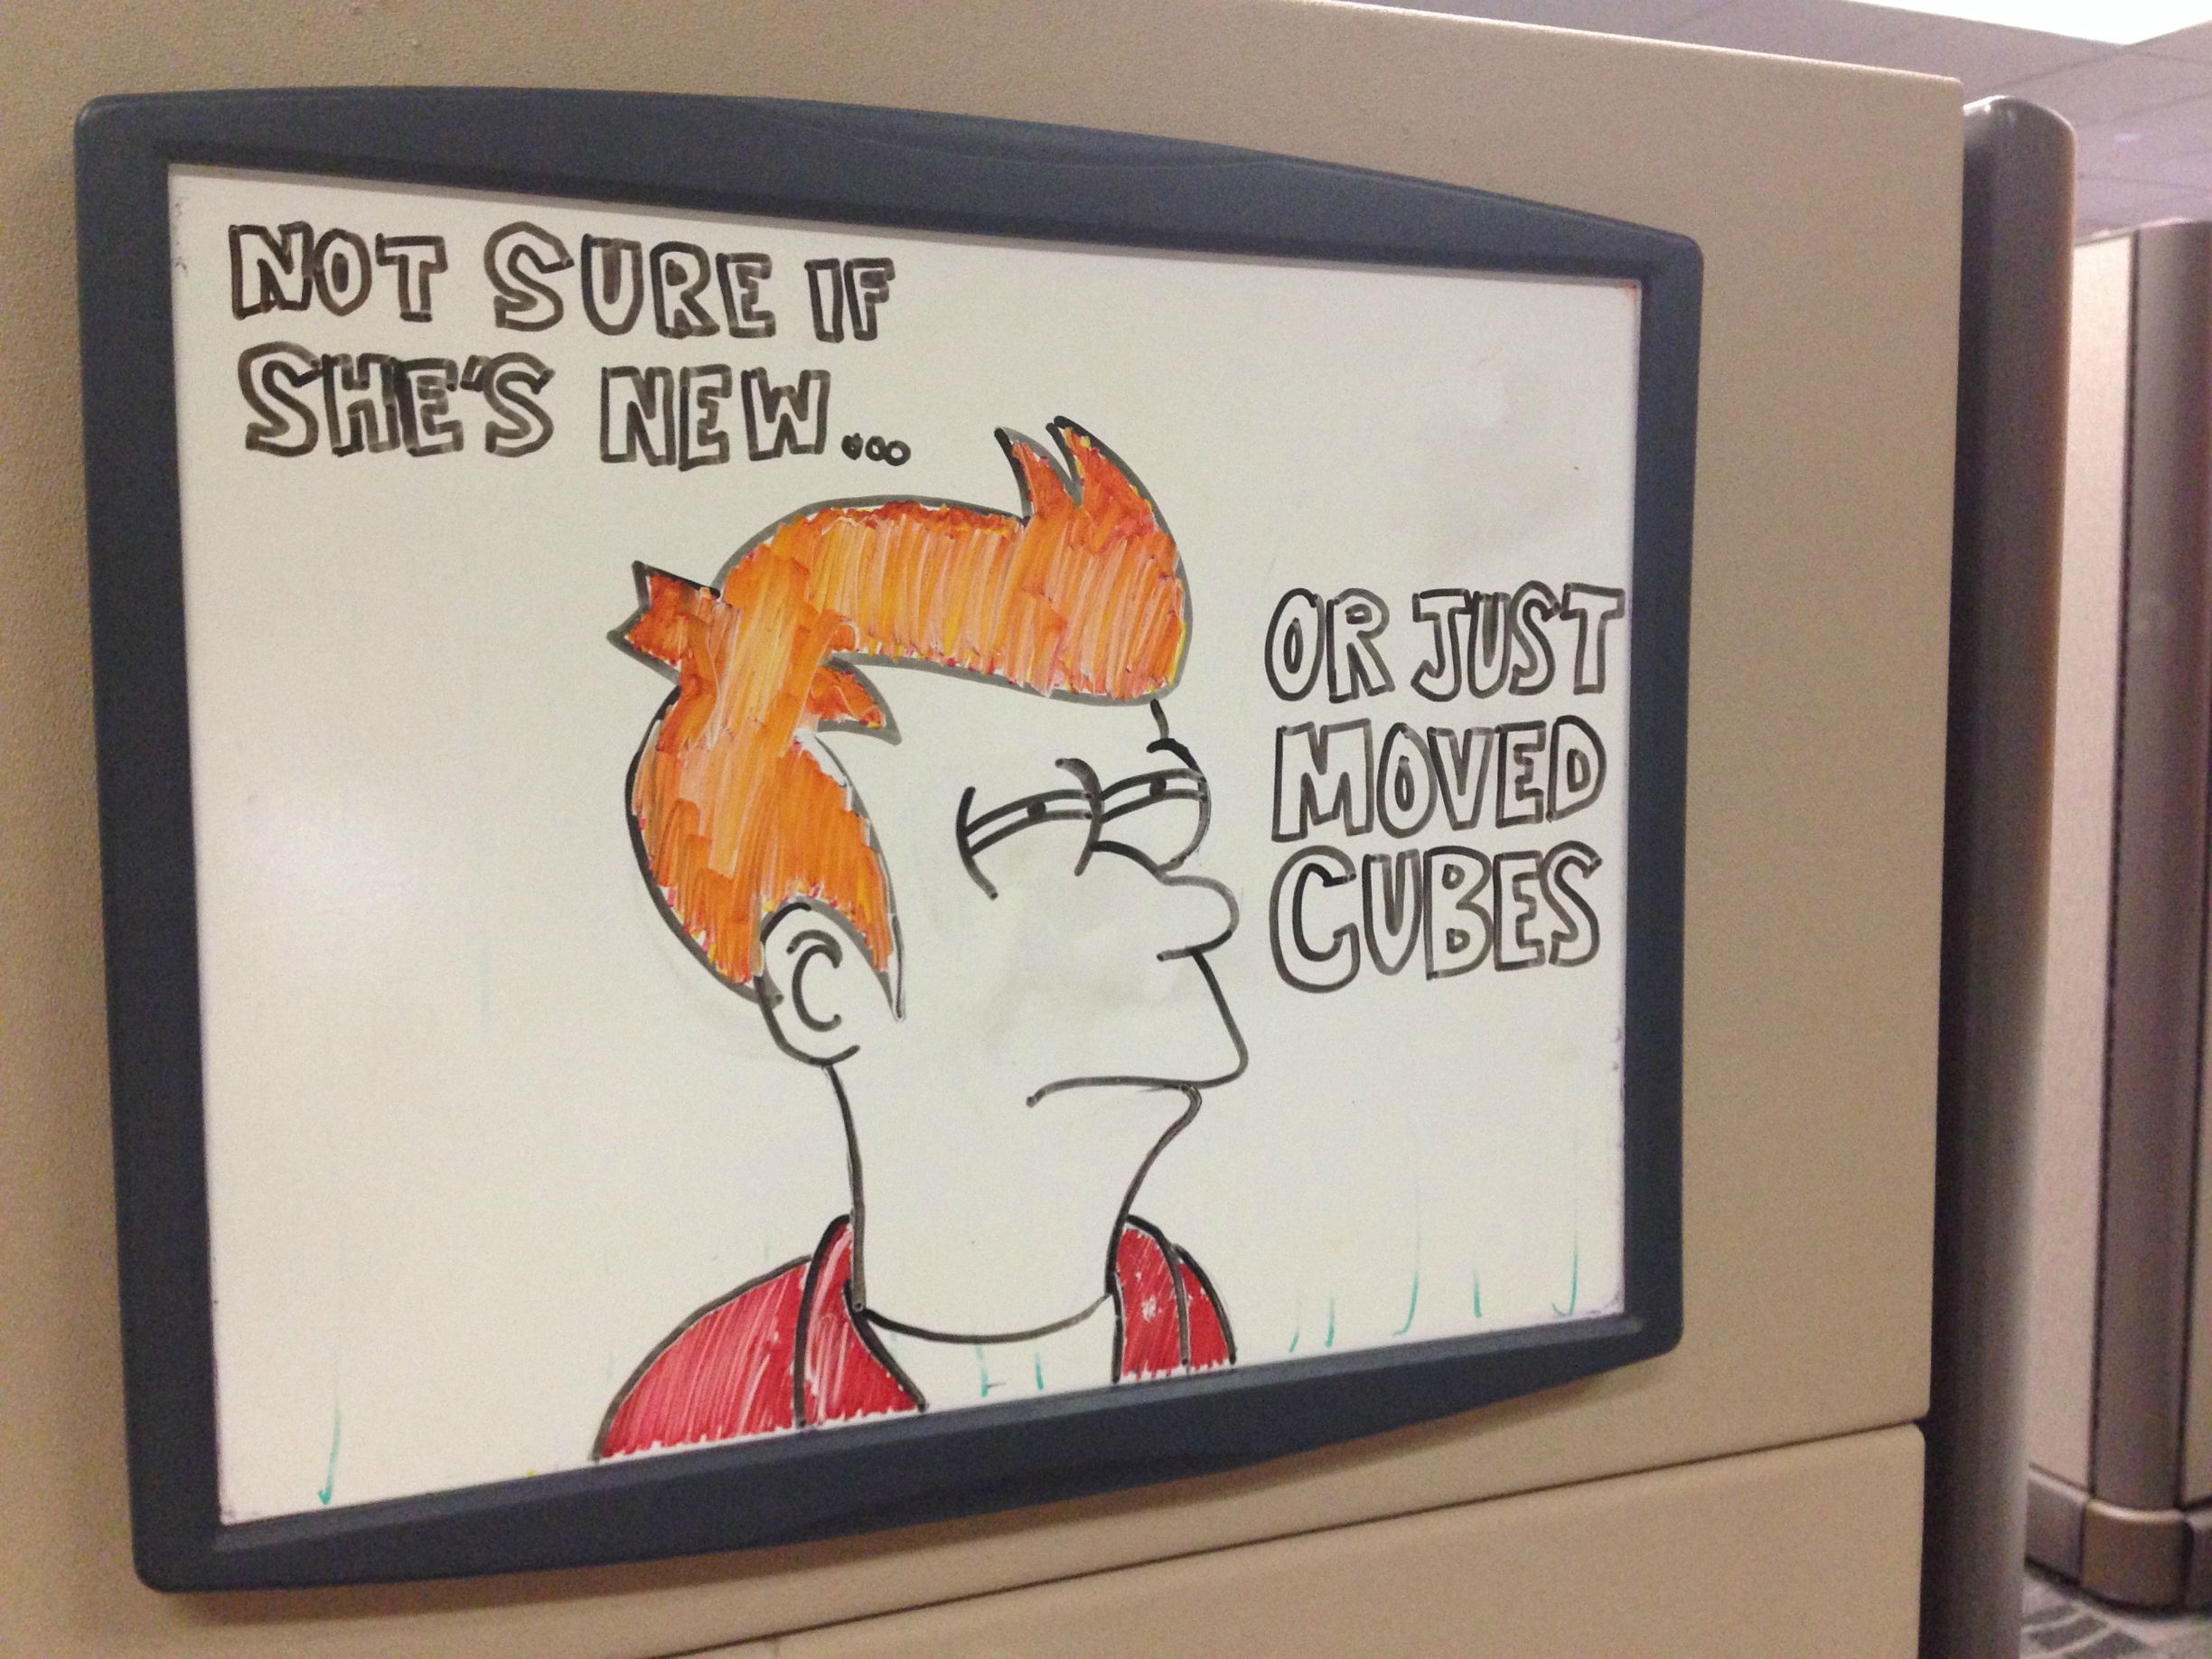 NOT SURE IF
SHE'S NEW...
OR JUST
MOVED
CUBES